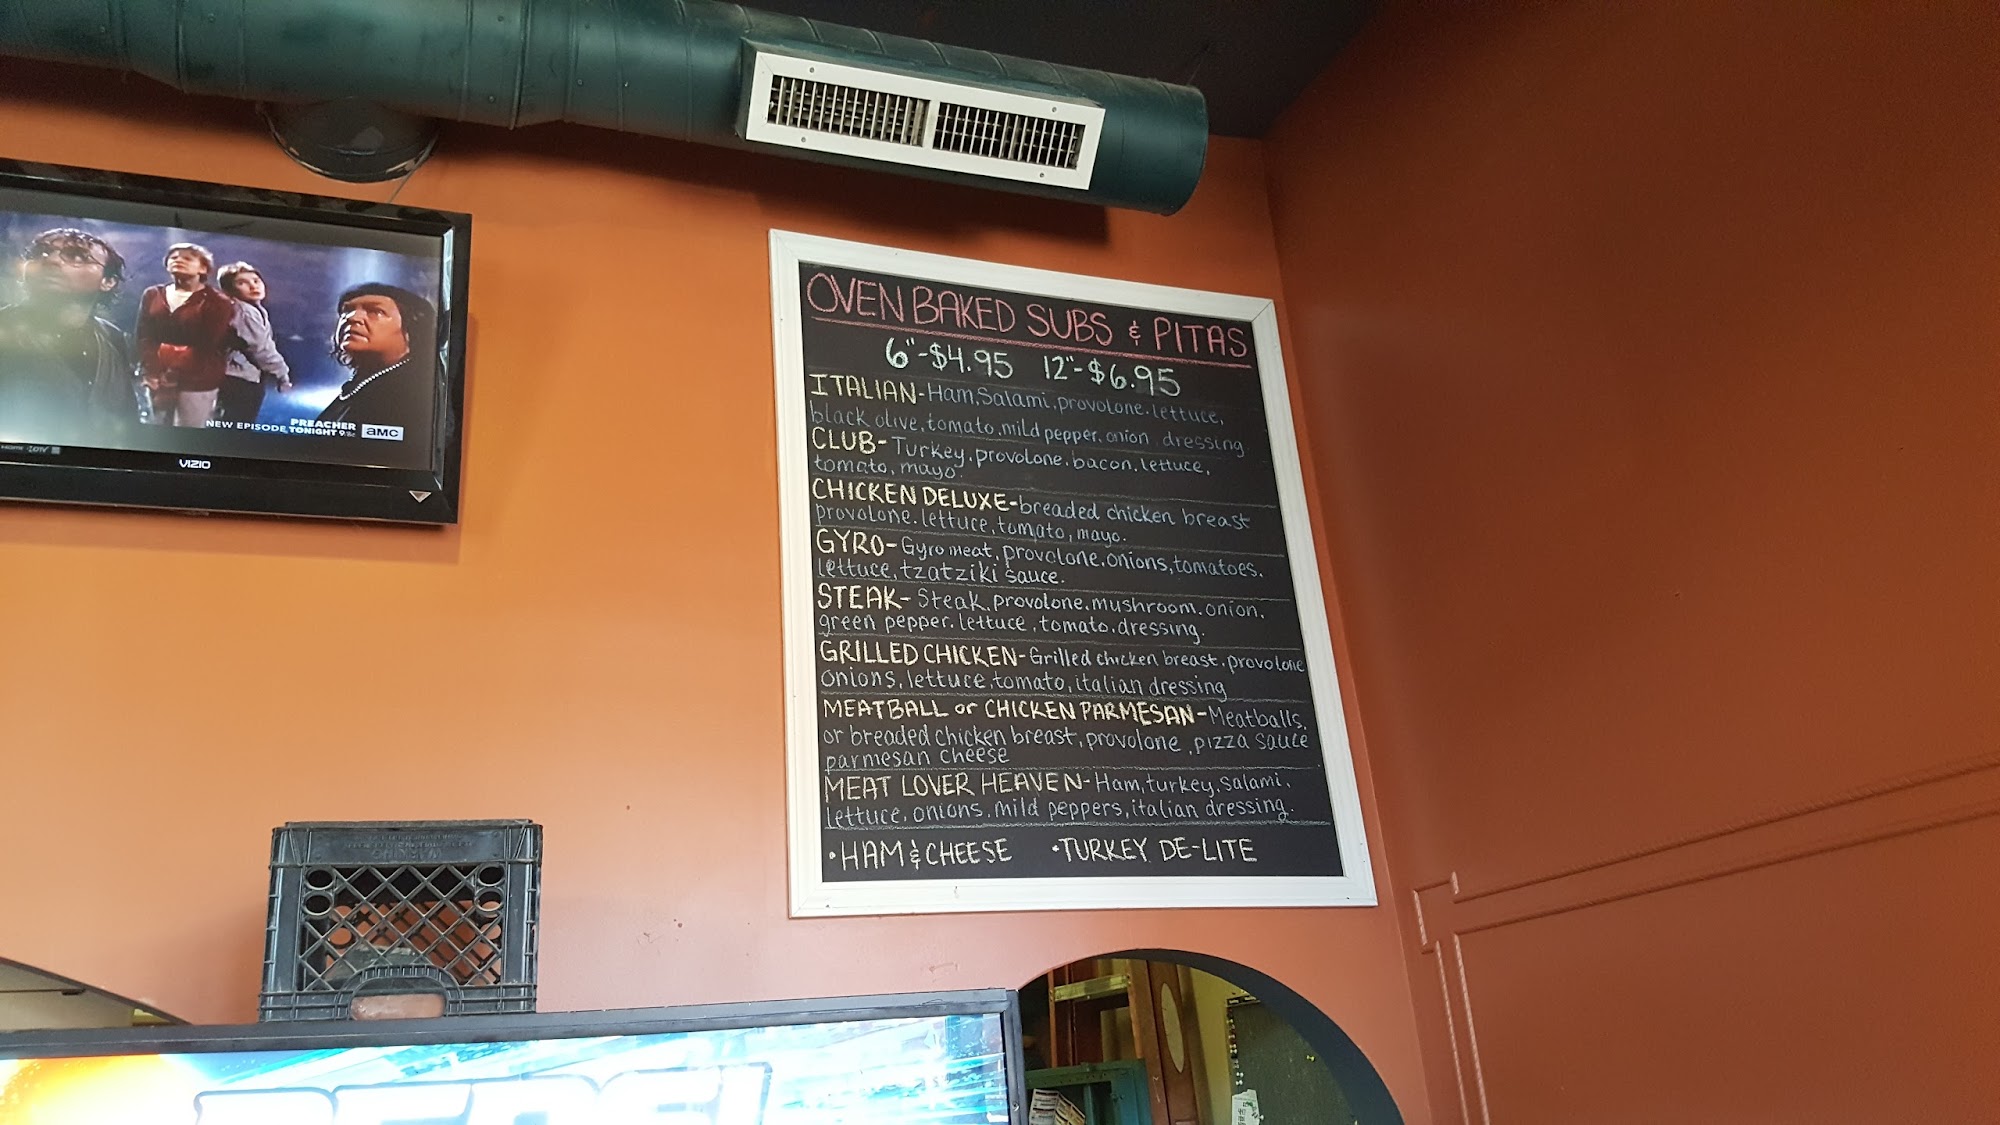 PREACHER
NEW EPISODE TONIGHT 9/8c aMC
VIZIO
OVEN BAKED SUBS & PITAS
6"-$4.95 12"-$6.95
ITALIAN-Ham, Salami, provolone, lettuce,
black olive, tomato, mild pepper, onion, dressing
CLUB-Turkey, provolone, bacon, lettuce,
tomato, mayo.
CHICKEN DELUXE-breaded chicken breast
provolone, lettuce, tomato, mayo.
GYRO-Gyro meat, provolone, onions, tomatoes,
lettuce, tzatziki sauce.
STEAK-Steak, provolone, mushroom, onion,
green pepper, lettuce, tomato, dressing.
GRILLED CHICKEN-Grilled chicken breast, provolone
onions, lettuce, tomato, italian dressing
MEATBALL or CHICKEN PARMESAN-Meatballs,
or breaded chicken breast, provolone, pizza sauce
parmesan cheese
MEAT LOVER HEAVEN-Ham, turkey, salami,
lettuce, onions, mild peppers, italian dressing.
•HAM & CHEESE •TURKEY DE-LITE
PEPSI